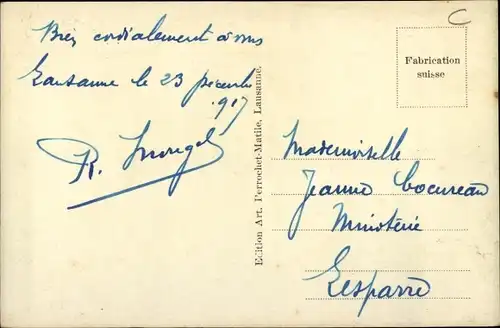 Bien cordialement à vous
Lausanne le 23 décembre
917
R.
Edition Art. Perrochet-Matile, Lausanne.
C
Fabrication
suisse
Mademoiselle
Jeanne Cocureau
Ministère
Lesparre